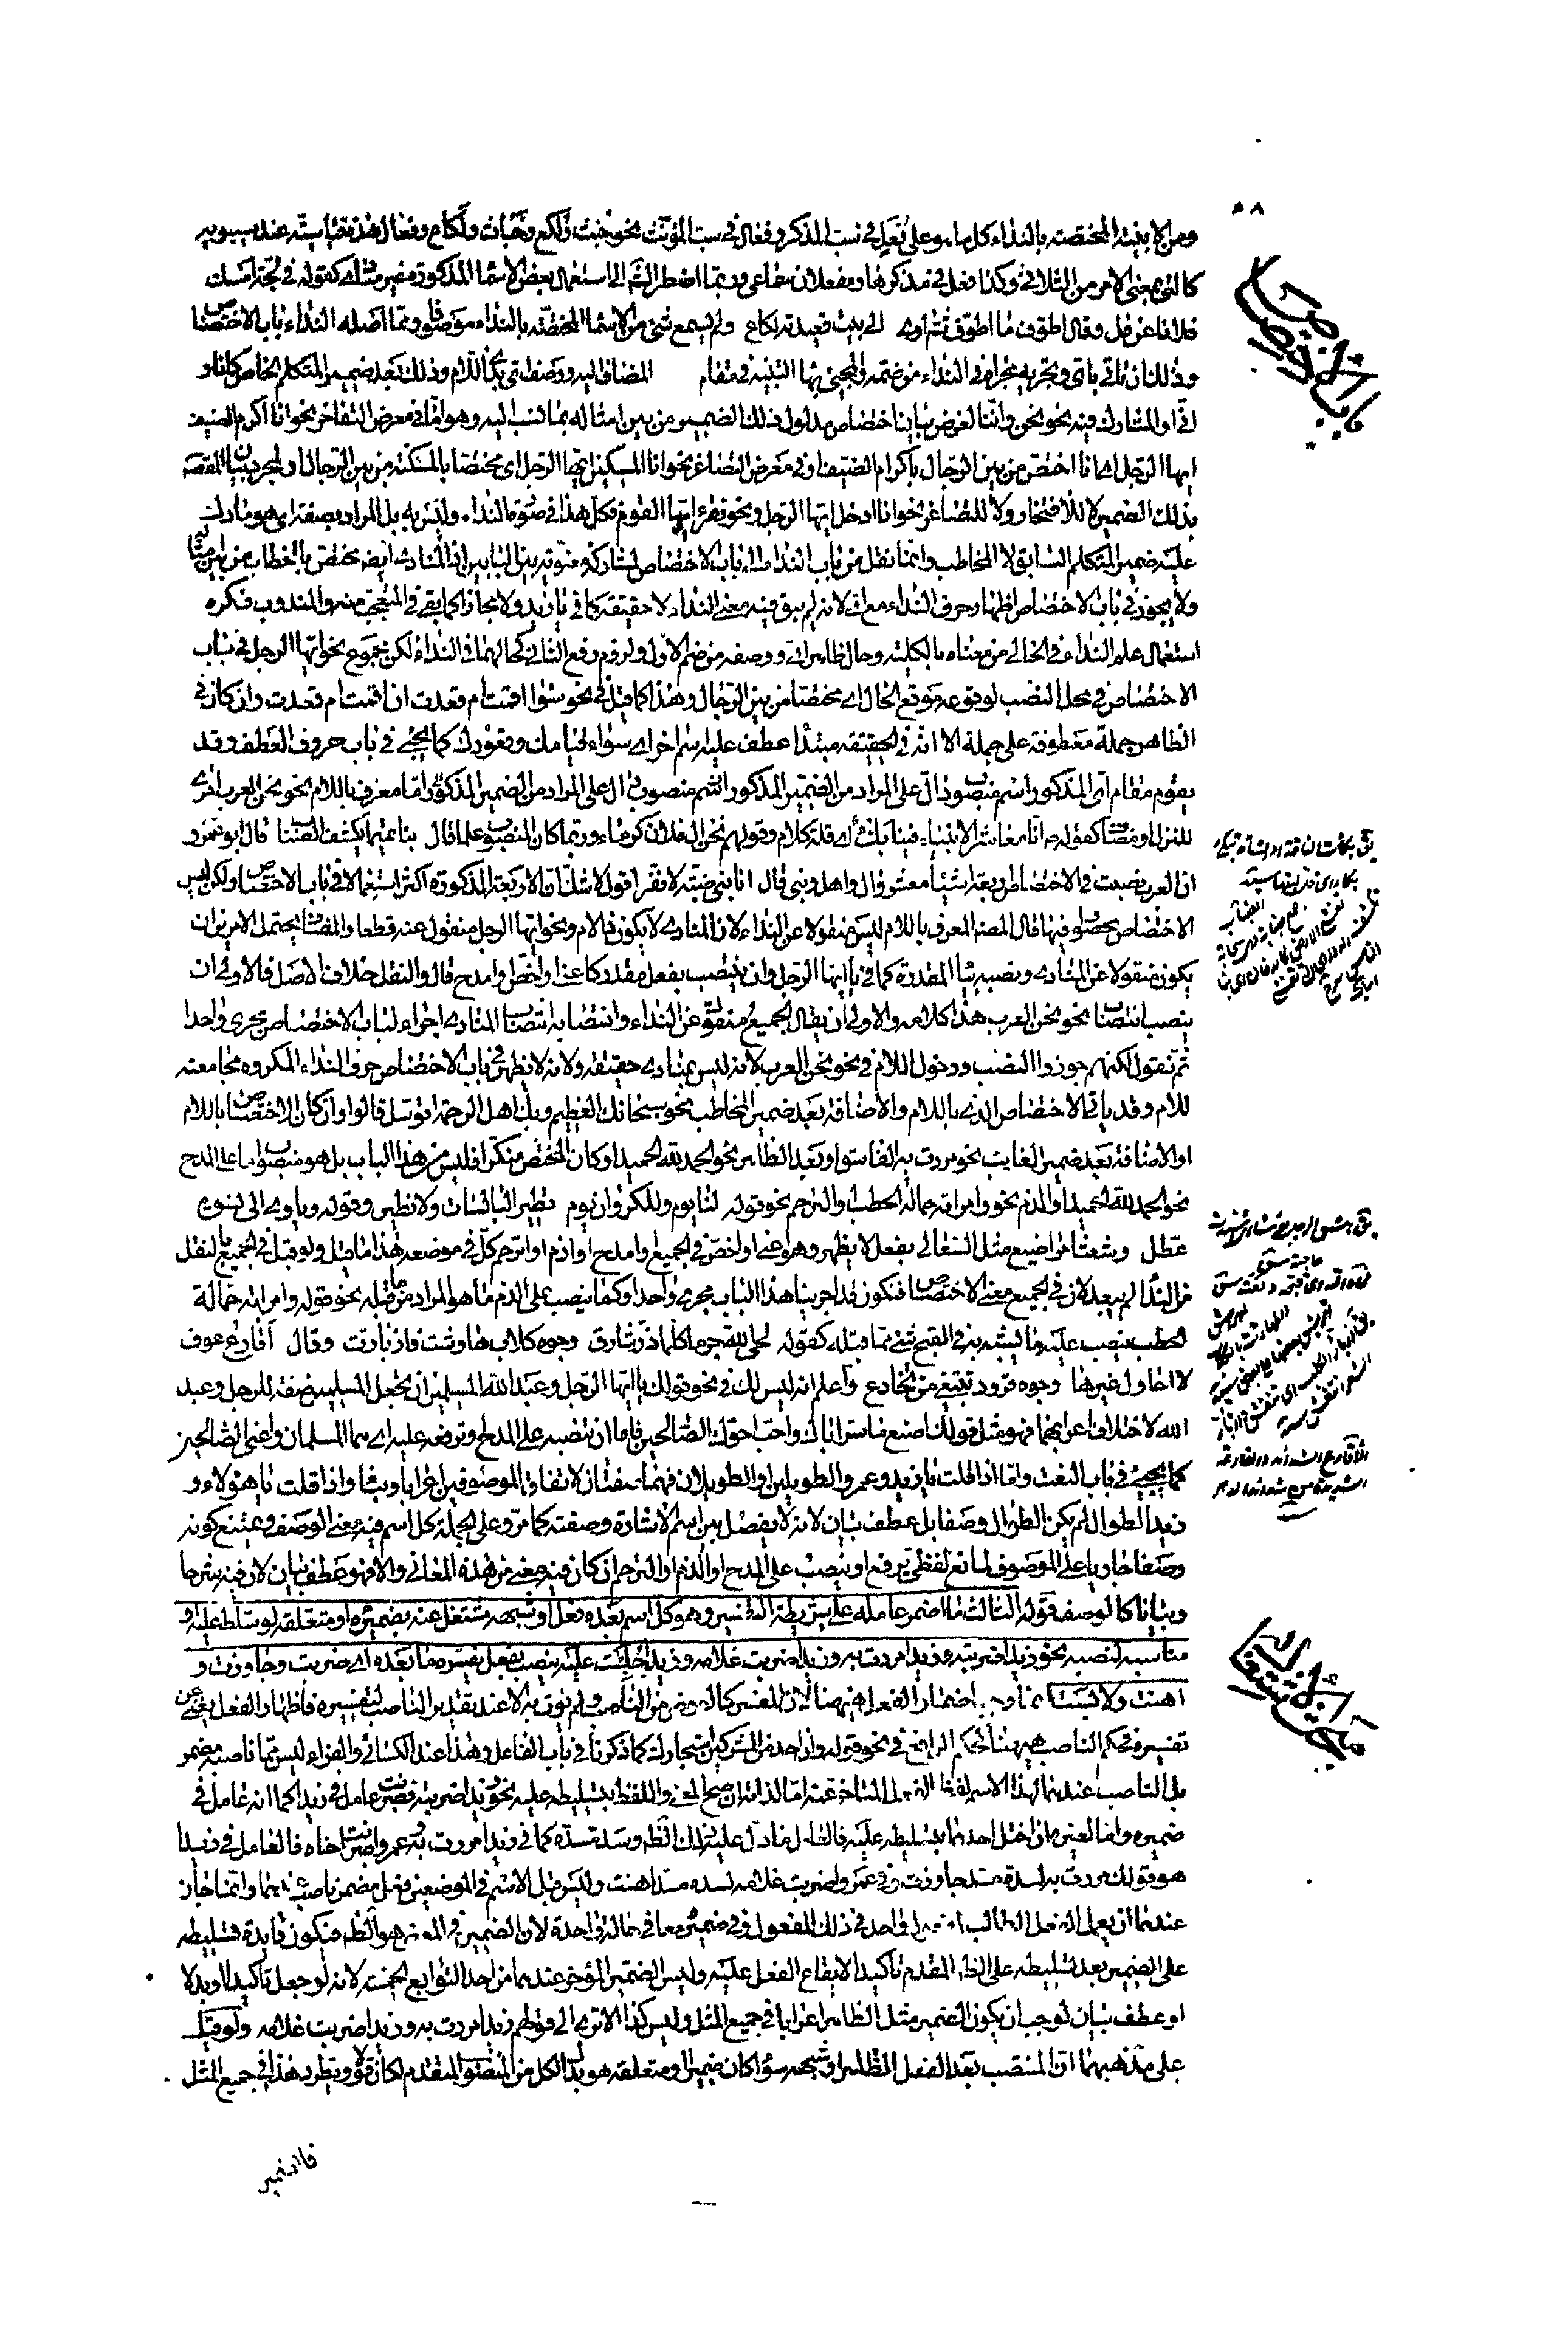 ومن الابنية المختصة بالنداء كل ما هو على فُعَل في سب المذكر و فعال في سب المؤنث نحو خبث ولكع وخباث ولكاع وفعال هذه قياسية عند سيبويه
كالتي بمعنى الامر من الثلاثي وكذا فعل في مذكرها ومفعلان سماعي وربما اضطر الشاعر الى استعمال بعض الاسماء المذكورة غير منادى كقوله في لجة امسك
فلانا عن فل وقال اطوف ما اطوف ثم اوى الى بيت قعيدته لكاع ولم يسمع شئ من الاسماء المختصة بالنداء موصوفا ومما اصله النداء باب الاختصاص
وذلك ان تأتي باي وتجريه مجراه في النداء من ضمه والمجئ بهاء التنبيه في مقام المضاف اليه ووصف اي بذي اللام وذلك بعد ضمير المتكلم الخاص كانا و
اني او المشارك فيه نحو نحن وانا لغرض بيان اختصاص مدلول ذلك الضمير من بين امثاله بما نسب اليه وهو اما في معرض التفاخر نحو انا اكرم الضيف
ايها الرجل اي انا اختص من بين الرجال باكرام الضيف او في معرض التصاغر نحو انا المسكين ايها الرجل اي مختصا بالمسكنة من بين الرجال او لمجرد بيان المقصود
بذلك الضمير لا للافتخار ولا للتصاغر نحو انا ادخل ايها الرجل ونحو نقرأ ايها القوم فكل هذا في صورة النداء وليس به بل المراد بصفة اي هو ما دل
عليه ضمير المتكلم السابق لا المخاطب وانما نقل من باب النداء الى باب الاختصاص لمشاركة معنوية بين البابين اذ المنادى ايضا مختص بالخطاب من بين امثاله
ولا يجوز في باب الاختصاص اظهار حرف النداء مع اي لانه لم يبق فيه معنى النداء لا حقيقة كما في يا زيد ولا مجازا كما بقي في المتعجب منه والمندوب فكره
استعمال علم النداء في الخالي من معناه بالكلية وحال ظاهر اي ووصفه من ضم الاول ولزوم رفع الثاني كحالهما في النداء لكن مجموع نحو ايها الرجل في باب
الاختصاص في محل النصب لوقوعه موقع الحال اي مختصا من بين الرجال وهذا كما قيل في نحو سواء اقمت ام قعدت ان اقمت ام قعدت وان كان في
الظاهر جملة معطوفة على جملة الا انه في الحقيقة مبتدأ عطف عليه اسم اخر اي سواء قيامك وقعودك كما يجئ في باب حروف العطف وقد
يقوم مقام اي المذكور اسم منصوب دال على المراد من الضمير المذكور اما معرف باللام نحو نحن العرب اقرى
للنزل او مضاف كقوله صلى الله عليه انا معاشر الانبياء فينا بكء اي قلة كلام وقولهم نحن آل فلان كرماء وربما كان المنصوب علما قال بنا تميما يكشف الضباب قال ابو عمرو
ان العرب نصبت في الاختصاص اربعة اشياء معشر وآل واهل وبني قال انا بني ضبة لا نفر اقول لا شك ان الاربعة المذكورة اكثر استعمالا في باب الاختصاص ولكن ليس
الاختصاص محصورا فيها قال المصنف المعرف باللام ليس منقولا عن النداء لان المنادى لا يكون ذا لام ونحو ايها الرجل منقول عنه قطعا والمضاف يحتمل الامرين ان
يكون منقولا عن المنادى ونصبه بيا المقدرة كما في يا ايها الرجل وان ينتصب بفعل مقدر كاعني او اخص او امدح قال والنقل خلاف الاصل فالاولى ان
ينصب انتصاب نحو نحن العرب هذا كلامه والاولى ان يقال الجميع منقول عن النداء وانتصابه انتصاب المنادى اجراء لباب الاختصاص مجرى واحدا
ثم نقول لكنهم جوزوا النصب ودخول اللام في نحو نحن العرب لانه ليس بمنادى حقيقة ولانه لا يظهر في باب الاختصاص حرف النداء المكروه مجامعته
للام وقد يأتي الاختصاص الذي باللام والاضافة بعد ضمير المخاطب نحو سبحانك الله العظيم وبك اهل الرحمة اتوسل قالوا وان كان الاختصاص باللام
او الاضافة بعد ضمير الغايب نحو مررت به الفاسق او بعد الظاهر نحو الحمد لله الحميد او كان المختص منكرا فليس من هذا الباب بل هو منصوب اما على المدح
نحو الحمد لله الحميد او الذم نحو وامرأته حمالة الحطب او الترحم نحو قوله لنا يوم وللكروان يوم تطير البائسات ولا نطير وقوله وياوي الى نسوة
عطل وشعثا مراضيع مثل السعالى بفعل لا يظهر وهو اعني او اخص في الجميع او امدح او اذم او اترحم كل في موضعه هذا ما قيل ولو قيل في الجميع بالنقل
من النداء لم يبعد لان في الجميع معنى الاختصاص فنكون قد اجرينا هذا الباب مجرى واحدا وكما ينصب على الذم ما هو المراد مما قبله نحو قوله وامرأته حمالة
الحطب ينصب عليه ما يشبه به في القبح شئ مما قبله كقوله لحى الله جرما كلما ذر شارق وجوه كلاب هارشت فازبأرت وقال اقارع عوف
لا احاول غيرها وجوه قرود تبتغي من تخادع واعلم انه ليس لك في نحو قولك يا ايها الرجل وعبد الله المسلمين ان تجعل المسلمين صفة للرجل وعبد
الله لاختلاف اعرابهما فهو مثل قولك اصنع ما سر اباك واحب اخوك الصالحين فاما ان تنصبه على المدح او ترفعه عليه اي هما المسلمان واعني الصالحين
كما يجئ في باب النعت واما اذا قلت يا زيد وعمرو الطويلين او الطويلان فهما صفتان لاتفاق الموصوفين اعرابا وبناء واذا قلت يا هؤلاء و
زيد الطوال لم يكن الطوال وصفا بل عطف بيان لانه لا يفصل بين اسم الاشارة وصفته كما مر وعلى الجملة كل اسم فيه معنى الوصف ويمتنع كونه
وصفا جاريا على الموصوف لمانع لفظي يرفع او ينصب على المدح او الذم او الترحم ان كان فيه معنى من هذه المعاني والا فهو عطف بيان لان فيه شرحا
وبيانا كالوصف قوله الثالث ما اضمر عامله على شريطة التفسير وهو كل اسم بعده فعل او شبهه مشتغل عنه بضميره او متعلقه لو سلط عليه او
مناسبه لنصبه نحو زيدا ضربته وزيدا مررت به وزيدا ضربت غلامه وزيدا حبست عليه ينصب بفعل يفسره ما بعده اي ضربت وجاوزت و
اهنت ولابست انما وجب اضمار الفعل ههنا لان المفسر كالعوض من الناصب ولم يؤت به الا عند تقدير الناصب لتفسيره فاظهار الفعل يغني عن
تفسيره فحكم الناصب ههنا كحكم الرافع في نحو قوله وان احد من المشركين استجارك كما ذكرنا في باب الفاعل وهذا عند الكسائي والفراء ليس مما ناصبه مضمر
بل الناصب عندهما لهذا الاسم لفظ الفعل المتأخر عنه اما لذاته ان صح المعنى واللفظ بتسليطه عليه نحو زيدا ضربته فضربت عامل في زيدا كما انه عامل في
ضميره واما لغيره ان اختل احدهما بتسليطه عليه فالعامل ما دل عليه ذلك الظاهر وسد مسده كما في زيدا مررت به وعمرا ضربت اخاه فالعامل في زيدا
هو قولك مررت به لسده مسد جاوزت وفي عمرو ضربت غلامه لسده مسد اهنت وليس قبل الاسم في الموضعين فعل مضمر ناصب عندهما وانما جاز
عندهما ان يعمل الفعل الطالب لمفعول واحد في ذلك المفعول وفي ضميره معا في حالة واحدة لان الضمير في المعنى هو الظاهر فيكون فايدة تسليطه
على الضمير بعد تسليطه على الظاهر المقدم تأكيد الايقاع الفعل عليه وليس الضمير المؤخر عندهما من احد التوابع الخمسة لانه لو جعل تأكيدا او بدلا
او عطف بيان لوجب ان يكون الضمير مثل الظاهر اعرابا في جميع المثل وليس كذا الا ترى الى قولهم زيدا مررت به وزيدا ضربت غلامه ولو قيل
على مذهبهما ان المنتصب بعد الفعل الظاهر او شبهه سواء كان ضميرا او متعلقه هو بدل الكل من المنصوب المتقدم لكان قولا ويطرد هذا في جميع المثل
باب الاختصاص